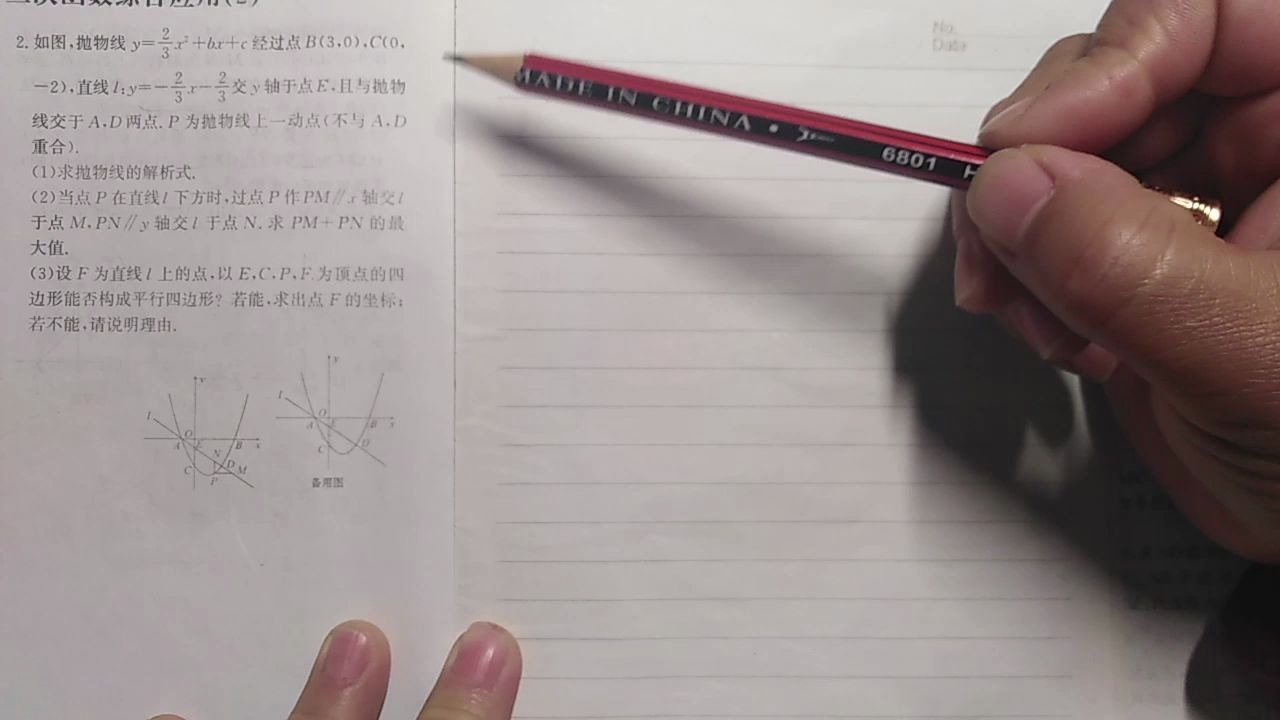 二次函数综合应用(2)
2.如图,抛物线 y=2/3x²+bx+c 经过点 B(3,0),C(0,
-2),直线 l:y=-2/3x-2/3交 y 轴于点 E,且与抛物
线交于 A,D 两点. P 为抛物线上一动点(不与 A,D
重合).
(1)求抛物线的解析式.
(2)当点 P 在直线 l 下方时,过点 P 作 PM∥x 轴交 l
于点 M,PN∥y 轴交 l 于点 N. 求 PM+PN 的最
大值.
(3)设 F 为直线 l 上的点,以 E,C,P,F 为顶点的四
边形能否构成平行四边形? 若能,求出点 F 的坐标;
若不能,请说明理由.
y
l
O
A
E
B
x
N
C
D
M
P
y
l
O
A
E
B
x
C
D
备用图
No.
Date
MADE IN CHINA
6801 H